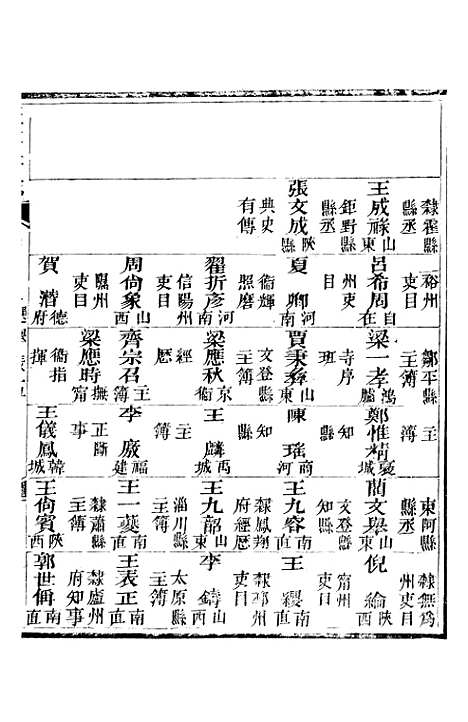 隸霍縣
縣丞
王成祿山東
鉅野縣
縣丞
張文成陝
縣
典史
有傳
裕州
吏目
呂希周自
州吏
目
夏卿河南
衞輝
照磨
翟折彥河南
信陽州
吏目
周尙象山西
隰州
吏目
賀潛德府
鄒平縣
主簿
梁一孝鴻臚
寺序
班
賈秉彝山
文登縣
主簿
梁應秋京衞
經
歷
齊宗召主簿
梁應時撫甯
衞指
揮
主
簿
鄭惟精夏城
知
縣
陳瑤商河
知
縣
王麟禹城
主
簿
李廠福建
正斷
事
王儀鳳韓城
東阿縣
縣丞
藺文舉山東
文登縣
知縣
王九睿南直
隸鳳翔
府經歷
王九韶山東
淄川縣
主簿
王一蘷南直
隸蕭縣
主簿
王尙賓陝西
隸無爲
州吏目
倪綸陝西
甯州
吏目
王纓南直
隸邳州
吏目
李鑄山
太原縣
主簿
王表正南直
隸廬州
府知事
郭世偁南直